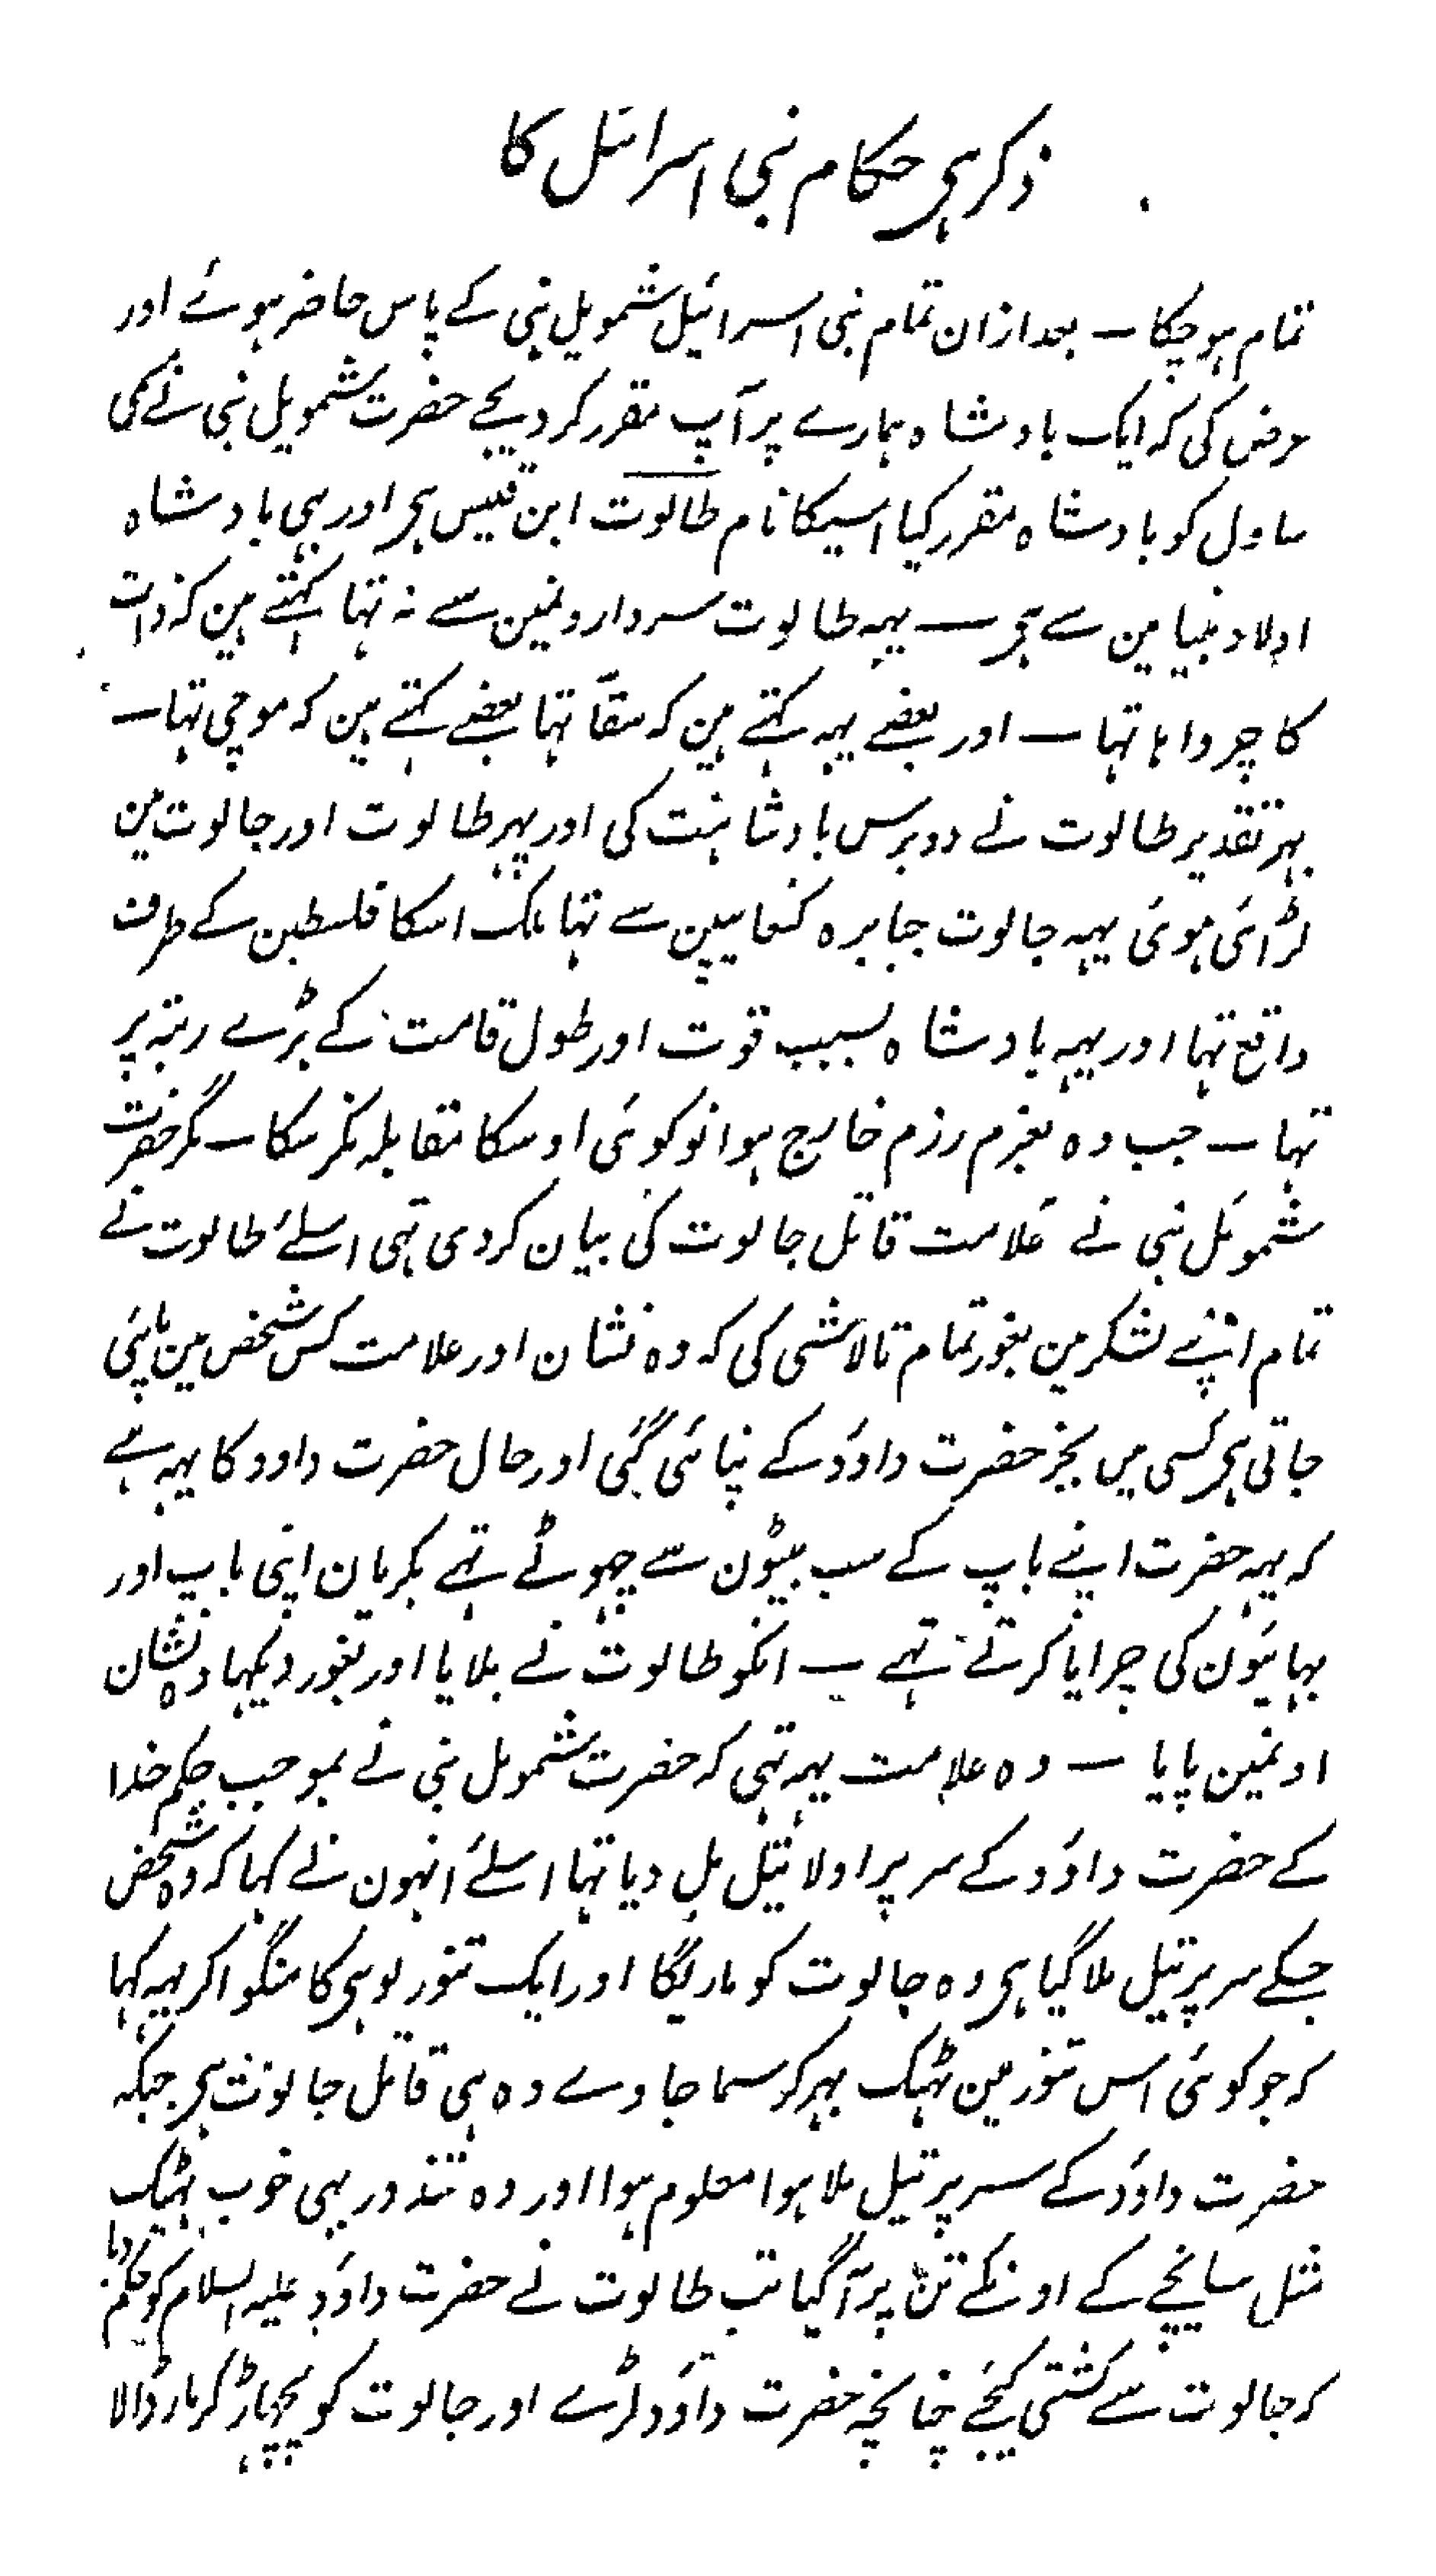 ذکر ہی حکام نبی اسرائل کا
تمام ہو چکا ۔ بعد ازان تمام نبی اسرائیل شمویل نبی کے پاس حاضر ہوئے اور
عرض کی کہ ایک بادشاہ ہمارے پر آپ مقرر کر دیجے حضرت شمویل نبی نے
ساول کو بادشاہ مقرر کیا اسیکا نام طالوت ابن قیس ہی اور یہی بادشاہ
اولاد بنیامین سے ہی ۔ یہہ طالوت سردارونمین سے نہ تہا کہتے ہین کہ ذات
کا چرواہا تہا ۔ اور بعضے یہہ کہتے ہین کہ سقّا تہا بعضے کہتے ہین کہ موچی تہا ۔
بہر تقدیر طالوت نے دو برس بادشاہت کی اور پہر طالوت اور جالوت مین
لڑائی ہوئی یہہ جالوت جبابرہ کنعانیین سے تہا ملک اسکا فلسطین کے طرف
واقع تہا اور یہہ بادشاہ بسبب قوت اور طول قامت کے بڑے رتبہ پر
تہا ۔ جب وہ بعزم رزم خارج ہوا تو کوئی اوسکا مقابلہ نکر سکا ۔ مگر حضرت
شموئل نبی نے علامت قاتل جالوت کی بیان کر دی تہی اسلئے طالوت نے
تمام اپنے لشکر مین بغور تمام تالاشی کی کہ وہ نشان اور علامت کس شخص مین پائی
جاتی ہی کسی میں بجز حضرت داوٗد کے نپائی گئی اور حال حضرت داود کا یہہ ہے
کہ یہہ حضرت اپنے باپ کے سب بیٹون سے چہوٹے تہے بکریان اپنی باپ اور
بہائیون کی چرایا کرتے تہے ۔ انکو طالوت نے بلایا اور بغور دیکہا وہ نشان
اونمین پایا ۔ وہ علامت یہہ تہی کہ حضرت شمویل نبی نے بموجب حکم خدا
کے حضرت داوٗد کے سر پر اولا تیل مل دیا تہا اسلئے انہون نے کہا کہ وہ شخص
جسکے سر پر تیل ملا گیا ہی وہ جالوت کو ماریگا اور ایک تنور لوہی کا منگوا کر یہہ کہا
کہ جو کوئی اس تنور مین ٹہیک بہر کر سما جاوے وہ ہی قاتل جالوت ہی جبکہ
حضرت داوٗد کے سر پر تیل ملا ہوا معلوم ہوا اور وہ تندور بہی خوب ٹہیک
مثل سانچے کے اونکے تن پر آگیا تب طالوت نے حضرت داوٗد علیہ السلام کو حکم دیا
کہ جالوت سے کشتی کیجے چنانچہ حضرت داوٗد لڑے اور جالوت کو پچہاڑ کر مار ڈالا